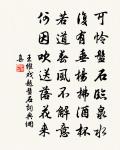 可憐盤石臨泉水
復有垂楊拂酒杯
若道春風不解意
何因吹送落花來
王維戲題盤石詞典網
集